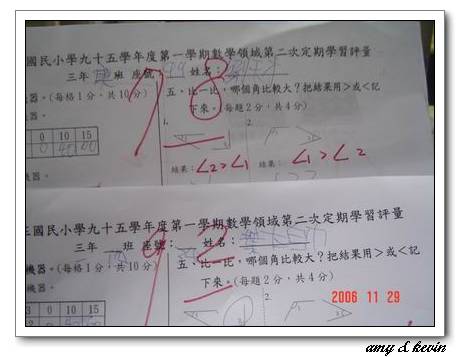 國民小學九十五學年度第一學期數學領域第二次定期學習評量
三年 班 座號： 姓名：
機器。(每格1分，共10分)
五、比一比，哪個角比較大？把結果用>或<記
下來。(每題2分，共4分)
器。
1. 2.
0 10 15
結果：∠2>∠1 結果：∠1>∠2
98
國民小學九十五學年度第一學期數學領域第二次定期學習評量
三年 四 班 座號： 姓名：
機器。(每格1分，共10分)
五、比一比，哪個角比較大？把結果用>或<記
下來。(每題2分，共4分)
機器。
2.
3 0 10 15
2006 11 29
amy & kevin